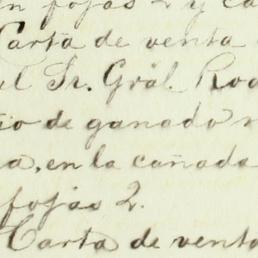 en fojas 2 y ca
Carta de venta
el Sr. Gral. Ro
io de ganado
a, en la cañada
fojas 2.
Carta de venta